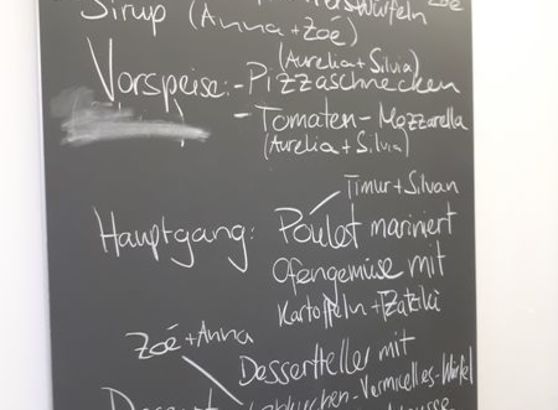 Zoé
Sirup (Anna + Zoé)
(Aurelia + Silvia)
Vorspeise: - Pizzaschnecken
- Tomaten - Mozzarella
(Aurelia + Silvia)
Timur + Silvan
Hauptgang: Poulet mariniert
Ofengemüse mit
Kartoffeln + Tzatziki
Zoé + Anna
Dessertteller mit
Lebkuchen - Vermicelles - Würfel